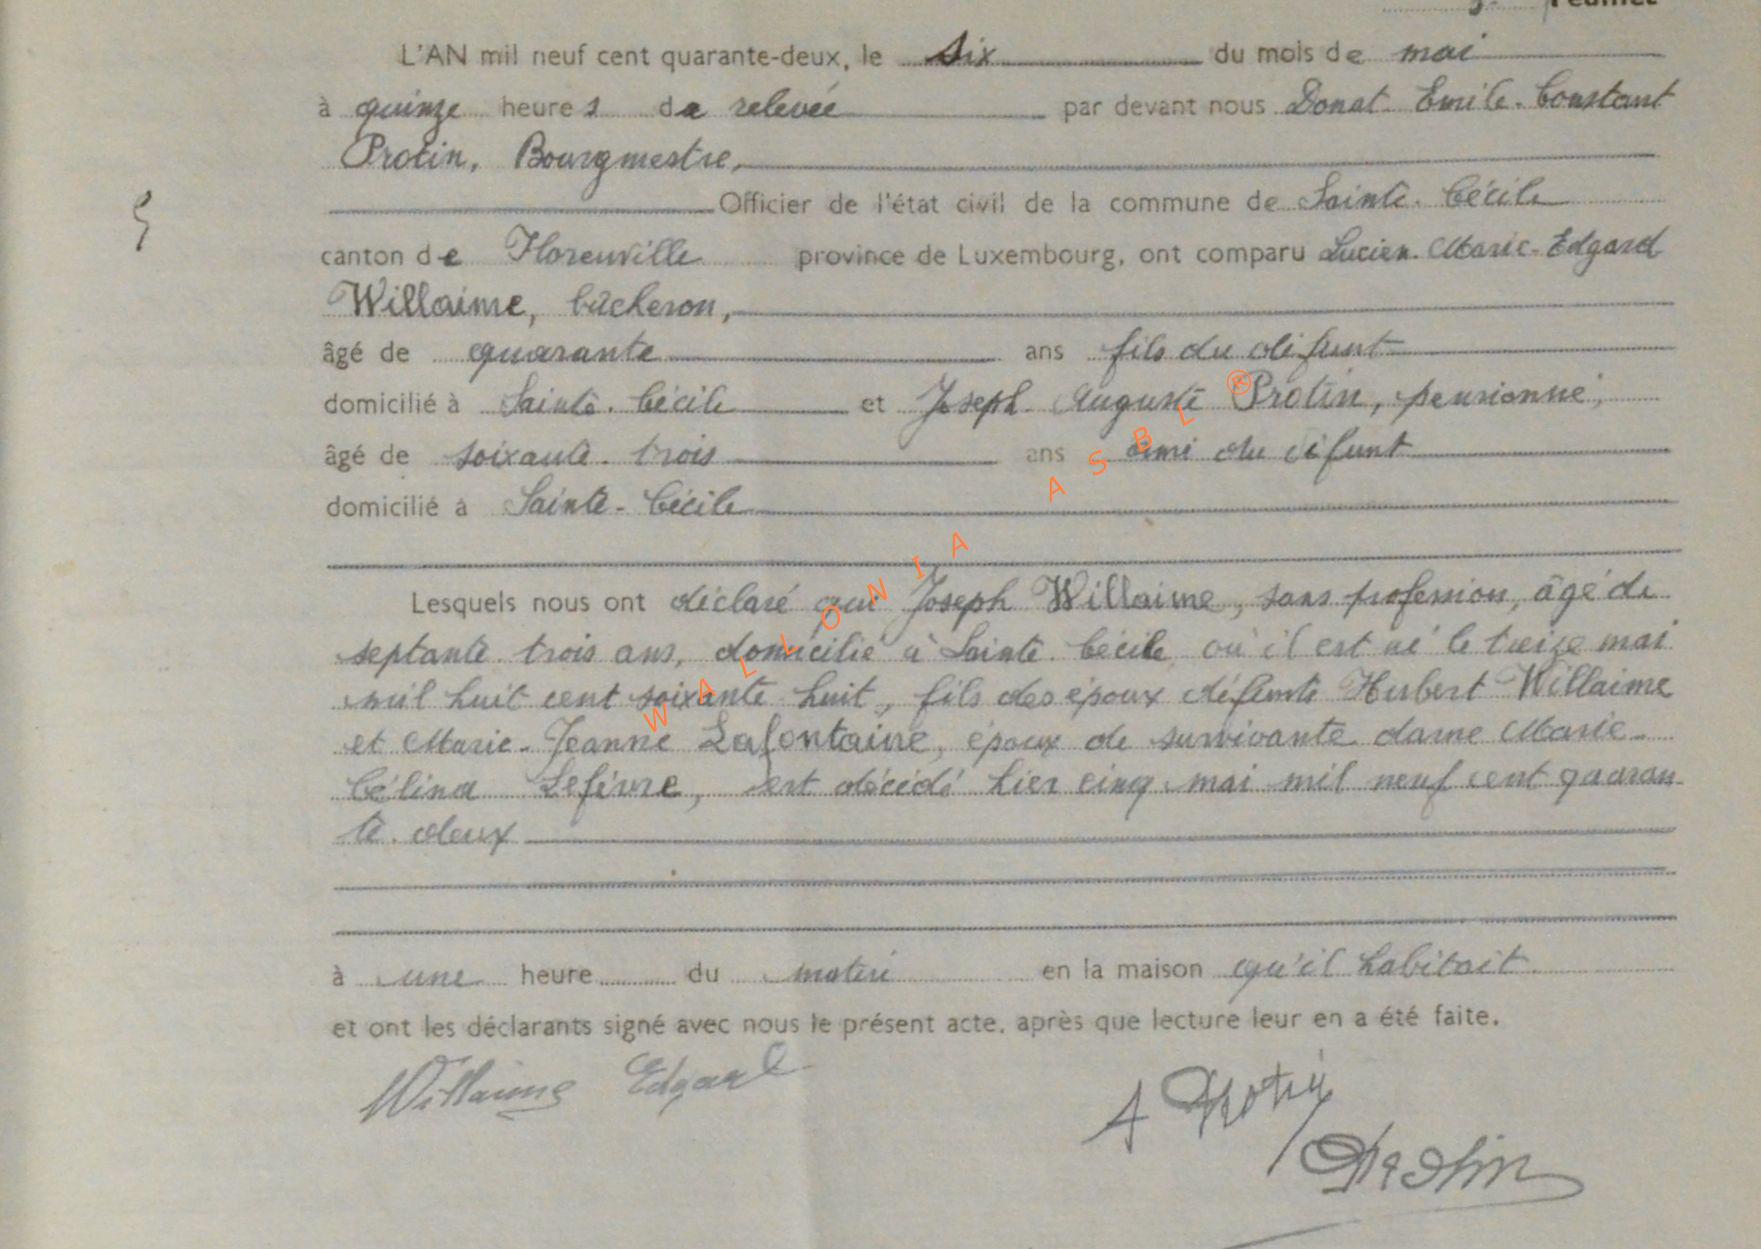 Feuillet
L'AN mil neuf cent quarante-deux, le six du mois de mai
à quinze heures de relevée par devant nous Donat Emile Constant
Protin, Bourgmestre,
5
Officier de l'état civil de la commune de Sainte-Cécile
canton de Florenville province de Luxembourg, ont comparu Lucien-Marie-Edgard
Willaime, bûcheron,
âgé de quarante ans fils du défunt
domicilié à Sainte-Cécile et Joseph Auguste Protin, pensionné,
âgé de soixante-trois ans ami du défunt
domicilié à Sainte-Cécile
Lesquels nous ont déclaré que Joseph Willaime, sans profession, âgé de
septante-trois ans, domicilié à Sainte-Cécile où il est né le treize mai
mil huit cent soixante huit, fils des époux défunts Hubert Willaime
et Marie-Jeanne Lafontaine, époux de survivante dame Marie-
Célina Lefèvre, est décédé hier cinq mai mil neuf cent quaran-
te-deux
à une heure du matin en la maison qu'il habitait
et ont les déclarants signé avec nous le présent acte, après que lecture leur en a été faite.
Willaime Edgard
A Protin
DProtin
WALLONIA ASBL ®